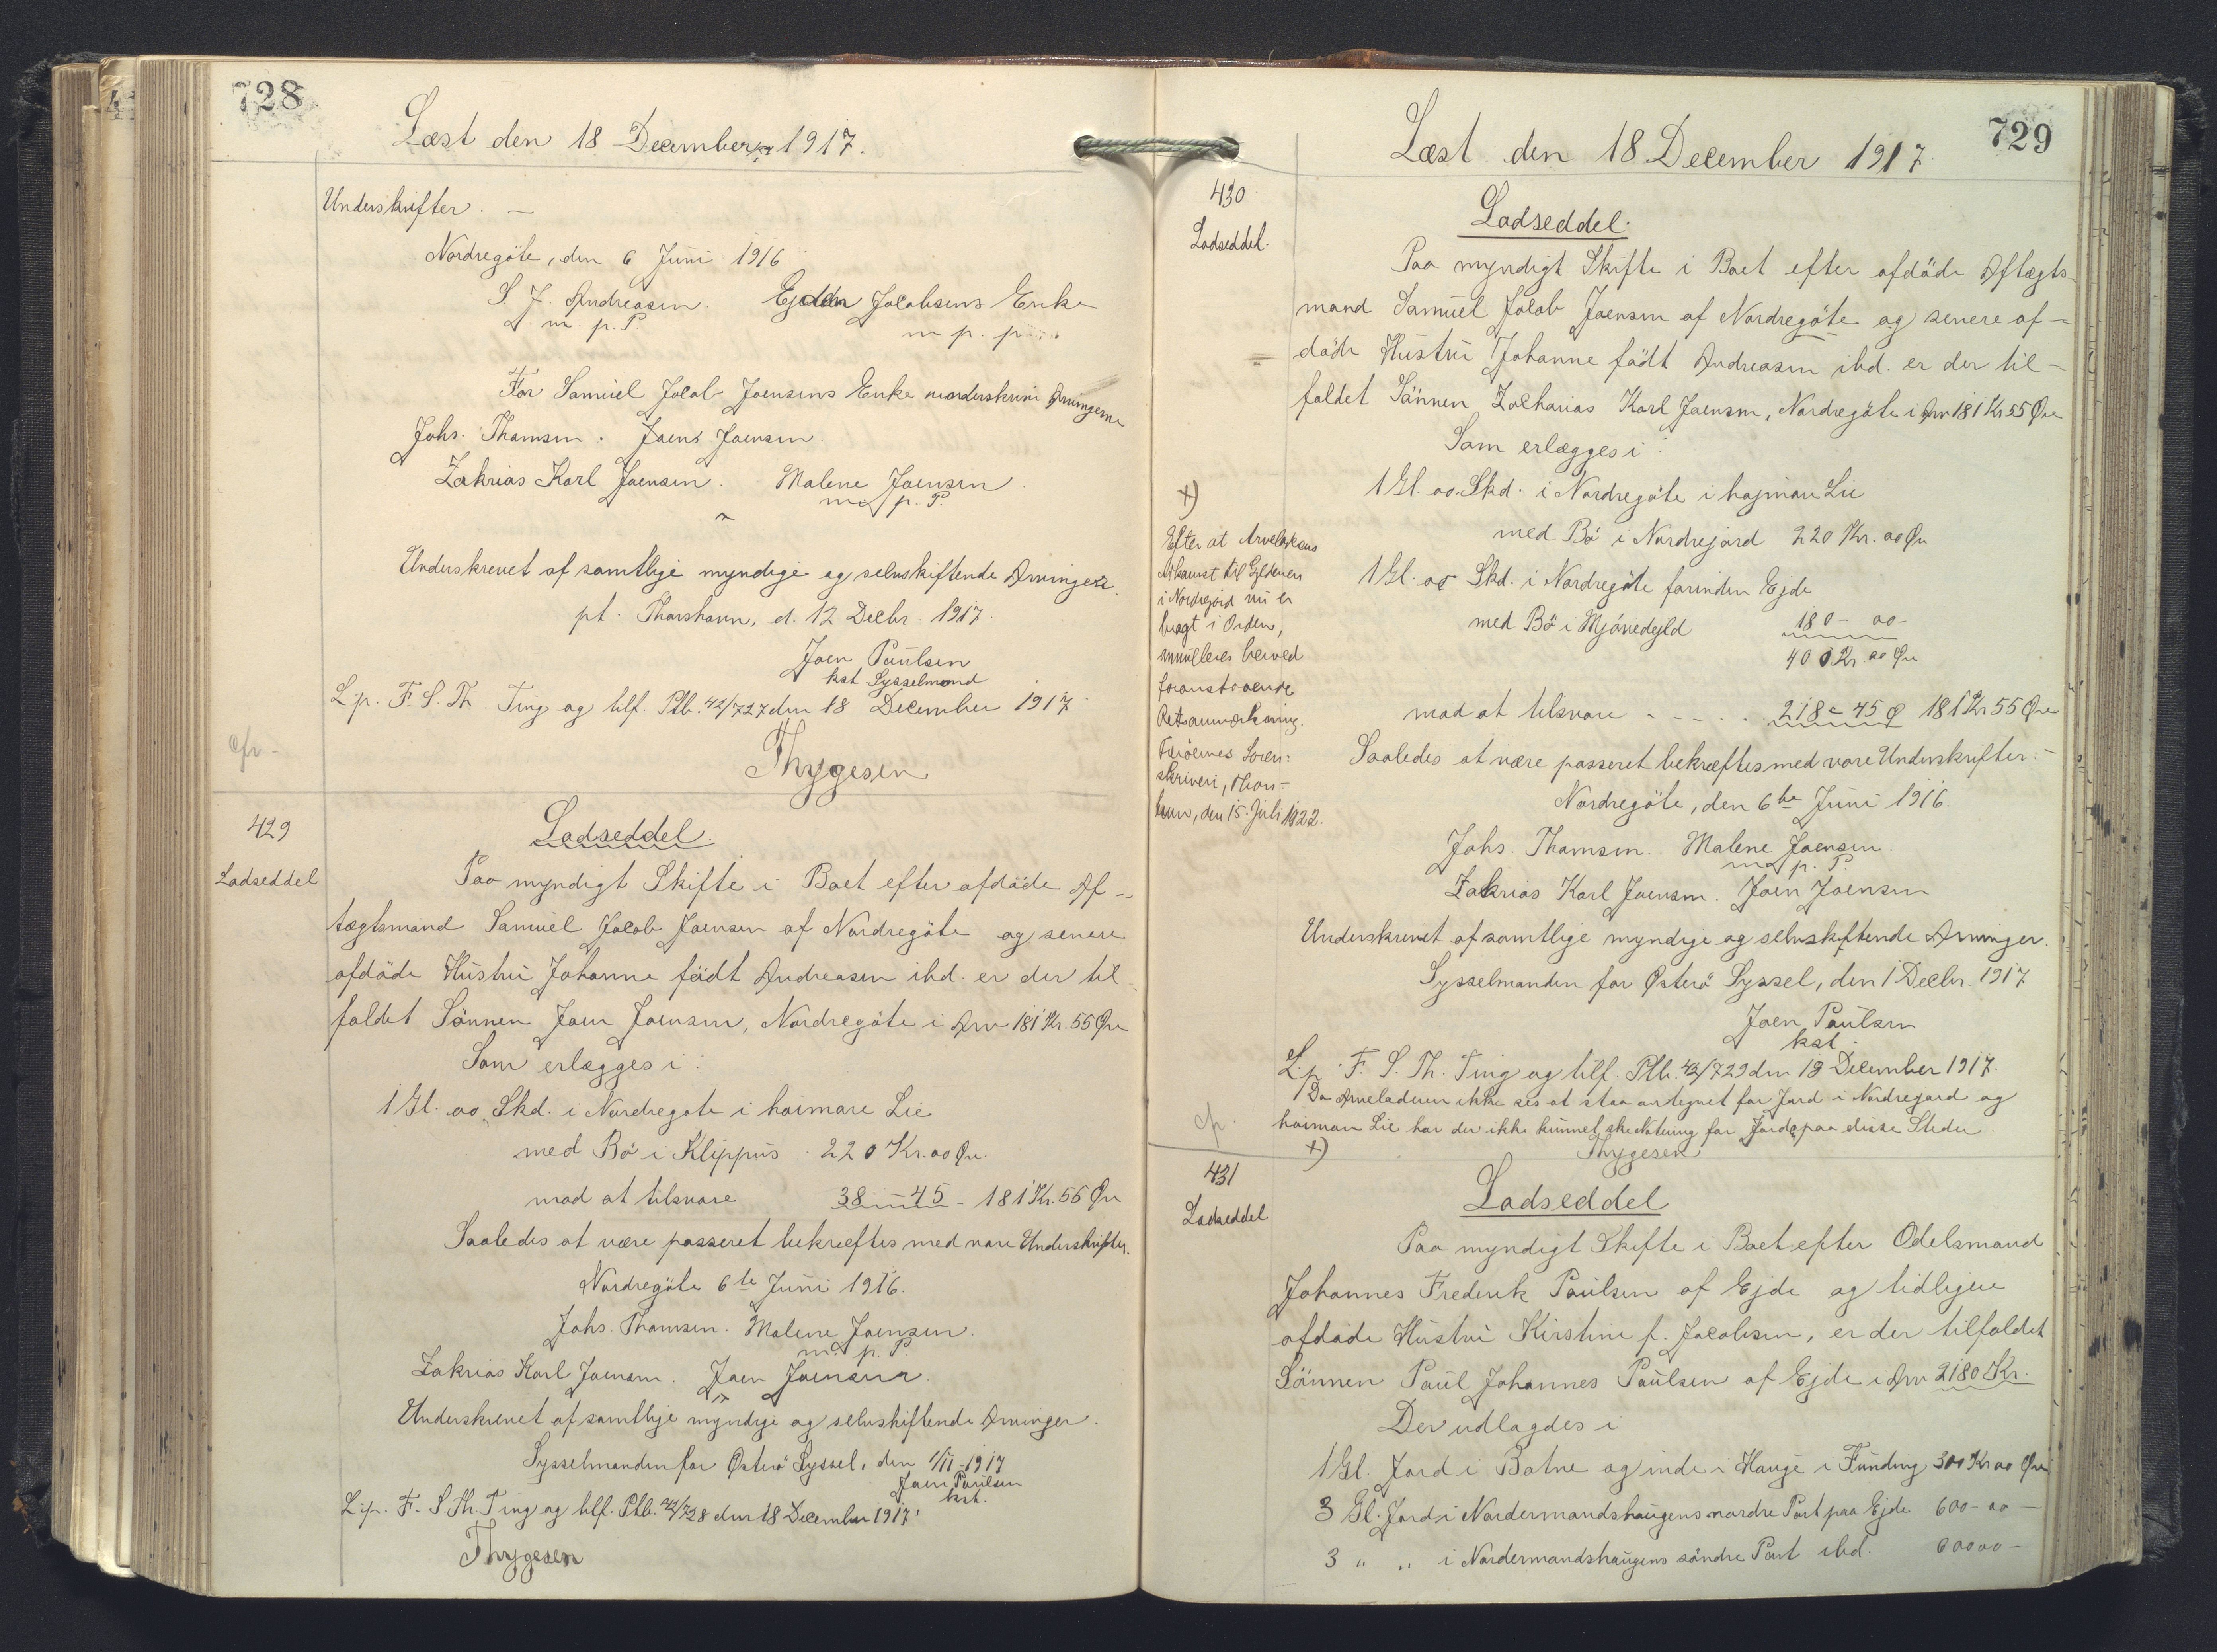 728
Læst den 18 December 1917.
Underskrifter. —
Nordregöte, den 6 Juni 1916
S. J. Andreasen. Jacobsens Enke
m. p. P. m p. p.
For Samuel Jacob Joensens Enke underskriver Arvingerne
Johs. Thomsen. Joen Joensen.
Zakrias Karl Joensen. Malene Joensen.
m. p. P.
Underskrevet af samtlige myndige og selvskiftende Arvinger.
pt. Thorshavn, d. 12 Decbr. 1917.
Joen Paulsen
kst. Sysselmand
L. p. F. S. Th. Ting og tilf. Ptb. 42/727 den 18 December 1917
cfr -
Thygesen
429
Lodseddel.
Lodseddel
Paa myndigt Skifte i Boet efter afdöde Af-
tægtsmand Samuel Jacob Joensen af Nordregöte og senere
afdöde Hustru Johanne födt Andreasen ibd. er der til
faldet Sönnen Joen Joensen, Nordregöte i Arv 181 Kr. 55 Øre
Som erlægges i:
1 Gl. oo Skd. i Nordregöte i hoimare Lie
med Bö i Klippus 220 Kr. oo Øre.
mod at tilsvare 38 — 45 - 181 Kr. 55 Øre
Saaledes at være passeret bekræftes med vore Underskrifter.
Nordregöte 6te Juni 1916.
Johs. Thomsen. Malene Joensen.
m. p. P.
Zakrias Karl Joensen. Joen Joensen.
Underskrevet af samtlige myndige og selvskiftende Arvinger.
Sysselmanden for Østerö Syssel, den 1/11-1917
Joen Paulsen
kst.
L. p. F. S. Th. Ting og tilf. Ptb. 42/728 den 18 December 1917.
Thygesen
729
Læst den 18 December 1917
430
Lodseddel.
Lodseddel.
Paa myndigt Skifte i Boet efter afdöde Aftægts-
mand Samuel Jacob Joensen af Nordregöte og senere af-
döde Hustru Johanne födt Andreasen ibd. er der til-
faldet Sönnen Zacharias Karl Joensen, Nordregöte i Arv 181 Kr 55 Øre
Som erlægges i:
1 Gl. oo. Skd. i Nordregöte i hojmare Lie
med Bö i Nordrejord 220 Kr. oo Øre
1 Gl. oo Skd. i Nordregöte forinden Ejde
med Bö i Mjövedeyld 180 - oo -
400 Kr. oo Øre
mod at tilsvare - - - - - 218 - 45 Ø 181 Kr 55 Øre
Saaledes at være passeret bekræftes med vore Underskrifter:
Nordregöte, den 6te Juni 1916.
Johs. Thomsen. Malene Joensen.
m. p. P.
Zakrias Karl Joensen. Joen Joensen
Underskrevet af samtlige myndige og selvskiftende Arvinger.
Sysselmanden for Østerö Syssel, den 1 Decbr. 1917
Joen Paulsen
kst.
L. p. F. S. Th. Ting og tilf. Ptb. 42/729 den 18 December 1917.
Da Arveladeren ikke ses at staa antegnet for Jord i Nordregard og
hoimare Lie har der ikke kunnet ske Notering for Jord paa disse Steder.
x) Thygesen
x)
Efter at Arveladerens
Adkomst til Gyldenen
i Nordrejord nu er
bragt i Orden,
annulleres herved
foranstaaende
Retsanmærkning.
Færöernes Soren:
skriveri, Thors-
havn, den 15. Juli 1922.
cfr.
431
Lodseddel
Lodseddel
Paa myndigt Skifte i Boet efter Odelsmand
Johannes Frederik Poulsen af Ejde og tidligere
afdöde Hustru Kirstine f. Jacobsen, er der tilfaldet
Sönnen Paul Johannes Poulsen af Ejde i Arv 2180 Kr.
Der udlagdes i
1 Gl. Jord i Botne og inde i Hauge i Funding 300 Kr oo Øre
3 Gl. Jord i Nordermandshaugens nordre Part paa Ejde 600 - oo -
3 " " i Nordermandshaugens söndre Part ibd. 600 oo -